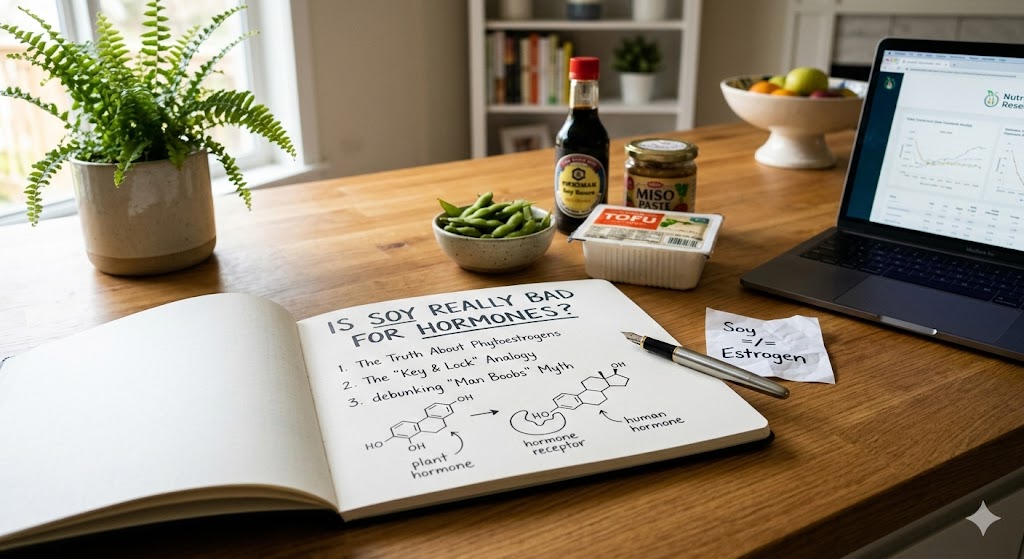 IS SOY REALLY BAD
FOR HORMONES?
1. The Truth About Phytoestrogens
2. The "Key & Lock" Analogy
3. debunking "Man Boobs" Myth
OH
HO
OH
plant
hormone
OH
HO
hormone
receptor
human
hormone
Soy
=/=
Estrogen
Soy Sauce
MISO
PASTE
TOFU
Nutr
Rese